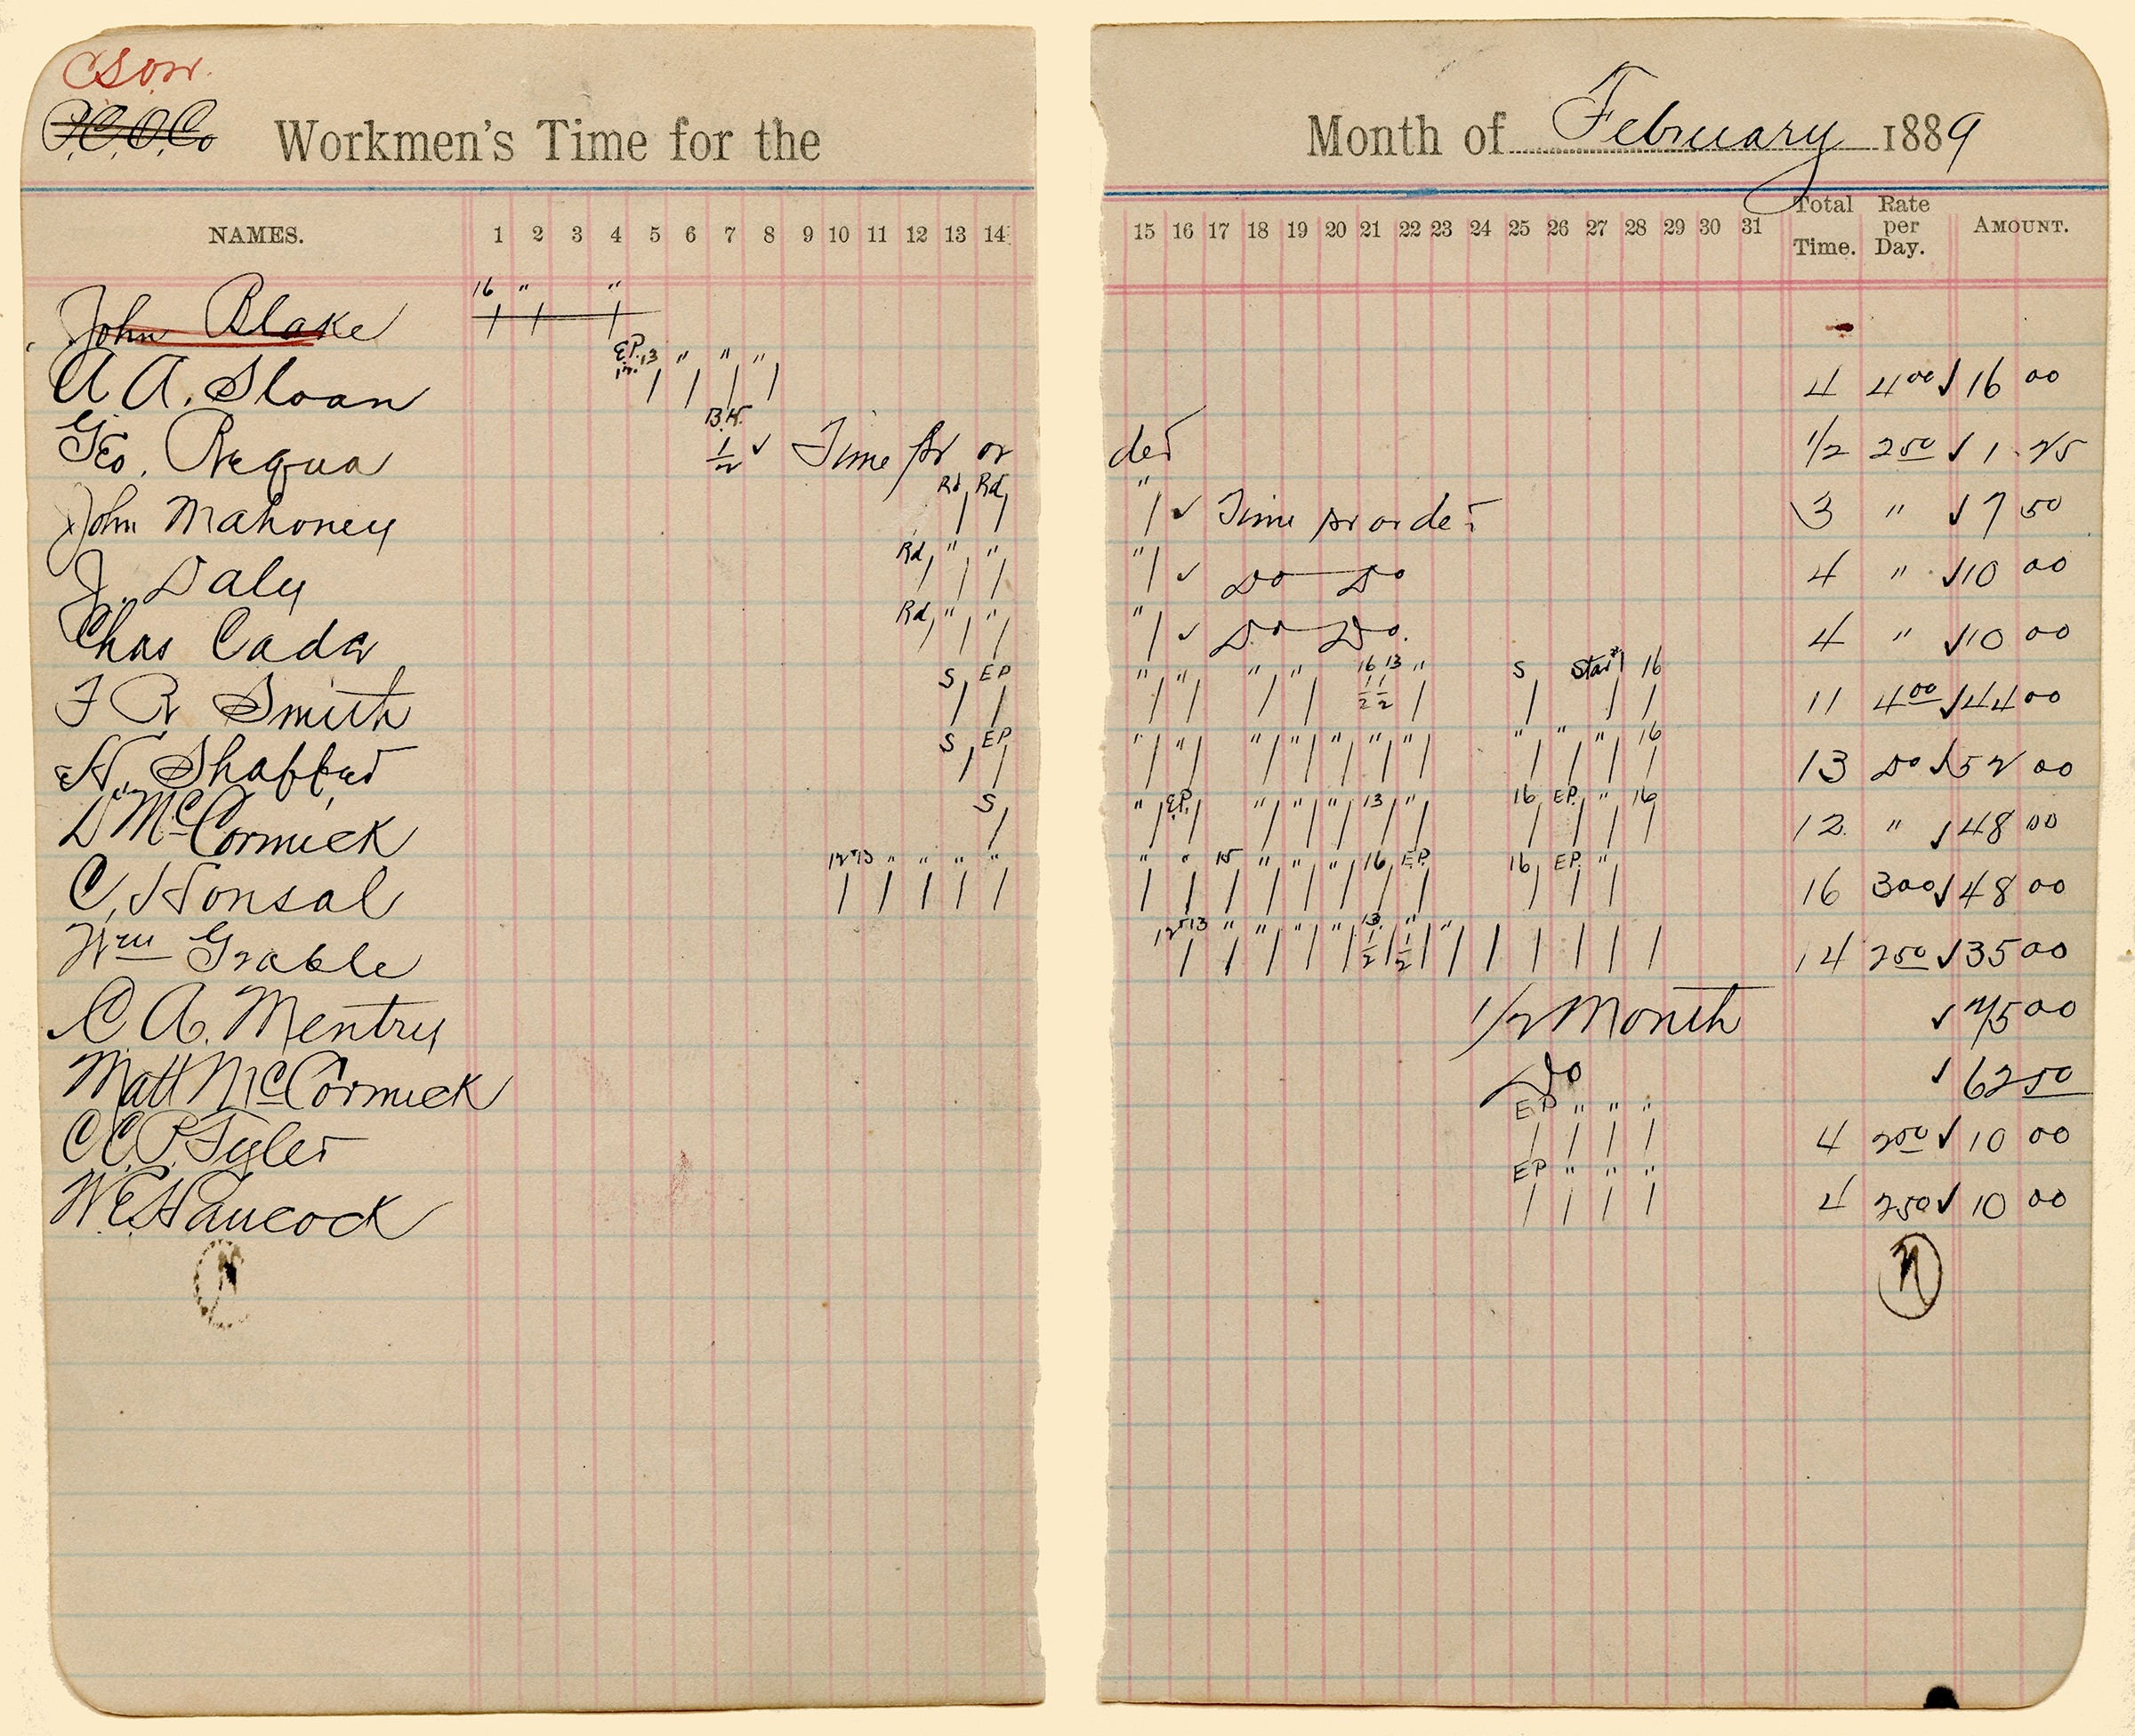 C.S.O.W.
P.C.O.Co Workmen's Time for the Month of February 1889
NAMES. 1 2 3 4 5 6 7 8 9 10 11 12 13 14 15 16 17 18 19 20 21 22 23 24 25 26 27 28 29 30 31 Total Time. Rate per Day. AMOUNT.
16 " "
John Blake / / /
E.P. 12. 13 " " "
A A. Sloan / / / / 4 4 00 ✓ 16 00
B.H.
Geo. Requa 1/2 ✓ Time pr or der 1/2 2 50 ✓ 1.25
Rd, Rd, "
John Mahoney / / / ✓ Time pr order 3 " ✓ 7 50
Rd, " " "
J. Daly / / / / ✓ Do Do 4 " ✓ 10 00
Rd, " " "
Chas Cada / / / / ✓ Do Do. 4 " ✓ 10 00
S EP " " " " 16 13 " S Star#1 16
F R Smith / / / / / / 1/2 1/2 / / / / 11 4 00 ✓ 44 00
S EP " " " " " " " " " " 16
H. Shaffer / / / / / / / / / / / / / 13 Do ✓ 52 00
S " EP. " " " 13 " 16 EP. " 16
D McCormick / / / / / / / / / / / / 12 " ✓ 48 00
12 13 " " " " " " 15 " " " 16 EP. 16 EP. "
C, Honsal / / / / / / / / / / / / / / / / 16 3 00 ✓ 48 00
12 13 " " " " 13. " "
Wm Grable / / / / / 1/2 1/2 / / / / / / 14 2 50 ✓ 35 00
C A. Mentry 1/2 Month ✓ 75 00
Matt McCormick Do ✓ 62 50
EP " " "
C.C.P. Tyler / / / / 4 2 50 ✓ 10 00
EP " " "
W.E. Hancock / / / / 4 2 50 ✓ 10 00